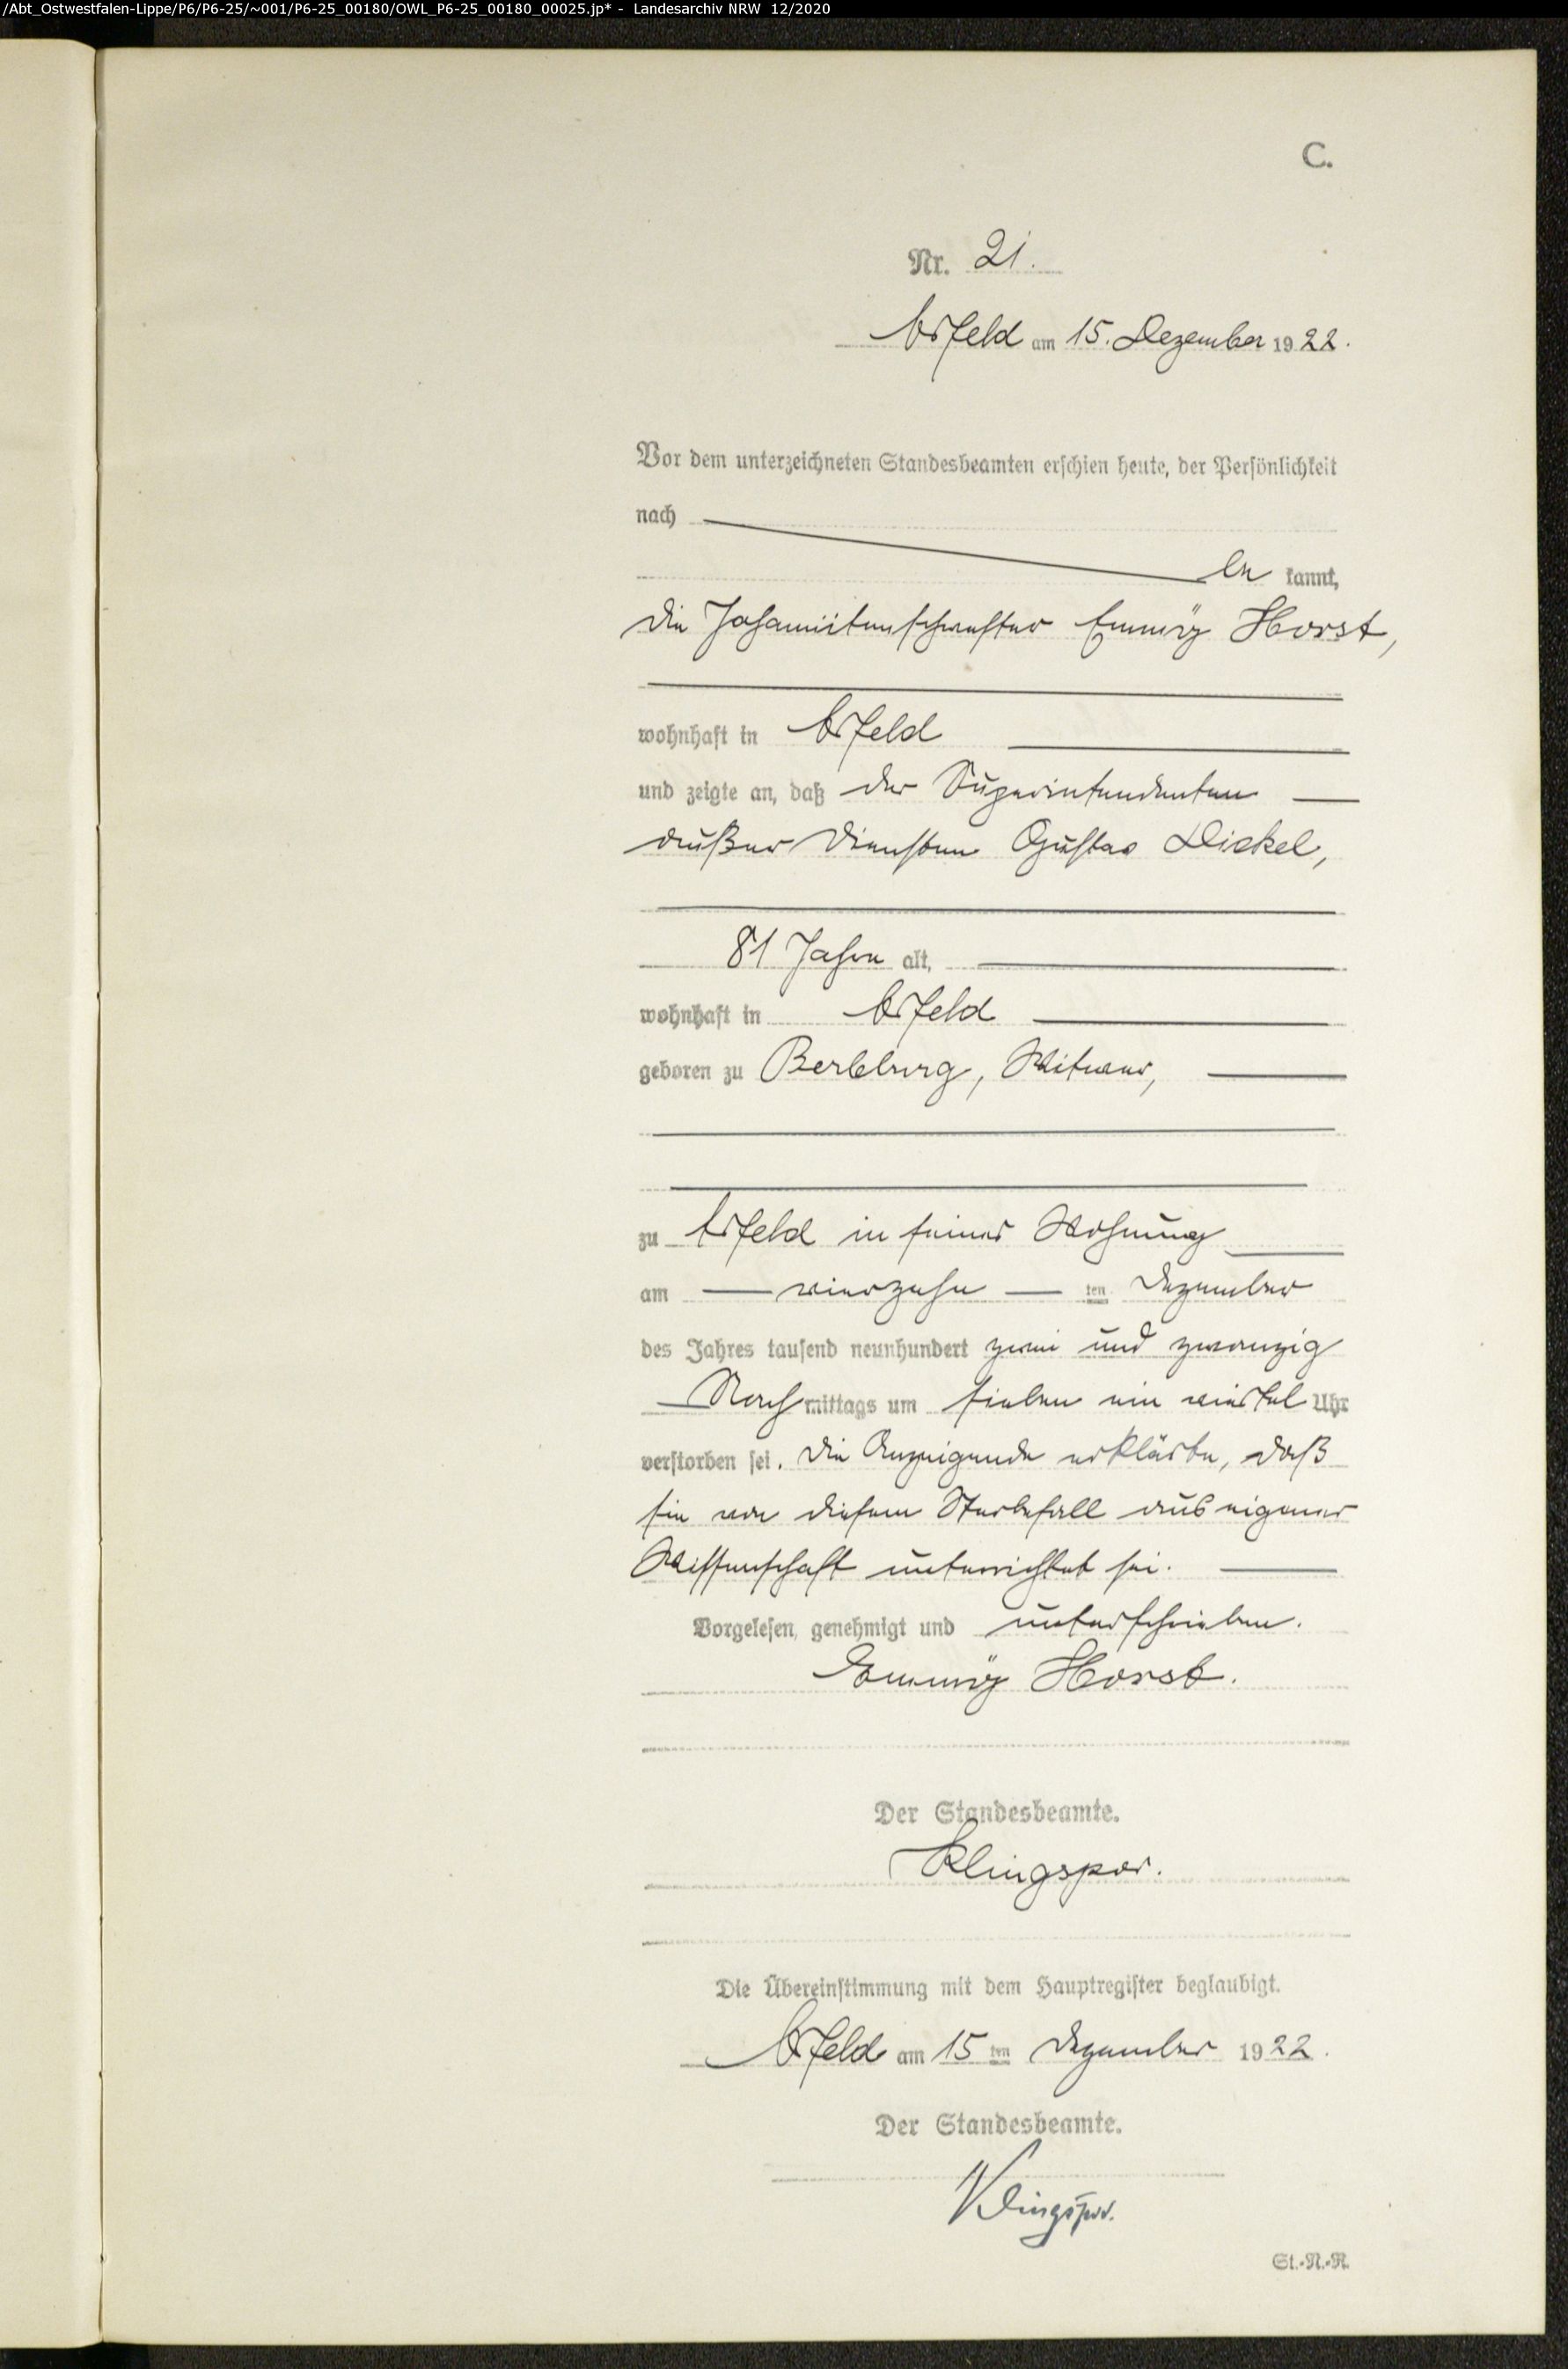 /Abt_Ostwestfalen-Lippe/P6/P6-25/~001/P6-25_00180/OWL_P6-25_00180_00025.jp* - Landesarchiv NRW 12/2020
C.
Nr. 21.
Arfeld am 15. Dezember 1922.
Vor dem unterzeichneten Standesbeamten erschien heute, der Persönlichkeit
nach
be kannt,
die Johanniterschwester Emmÿ Horst,
wohnhaft in Arfeld
und zeigte an, daß der Superintendenten
außer Diensten Gustav Dickel,
81 Jahre alt,
wohnhaft in Arfeld
geboren zu Berleburg, Witwer,
zu Arfeld in seiner Wohnung
am vierzehn ten Dezember
des Jahres tausend neunhundert zwei und zwanzig
Nachmittags um sieben ein viertel Uhr
verstorben sei. Die Anzeigende erklärte, daß
sie von diesem Sterbefall aus eigener
Wissenschaft unterrichtet sei.
Vorgelesen, genehmigt und unterschrieben.
Emmÿ Horst.
Der Standesbeamte.
Klingspor.
Die Übereinstimmung mit dem Hauptregister beglaubigt.
Arfeld am 15 ten Dezember 1922.
Der Standesbeamte.
Klingspor.
St.-N.-R.